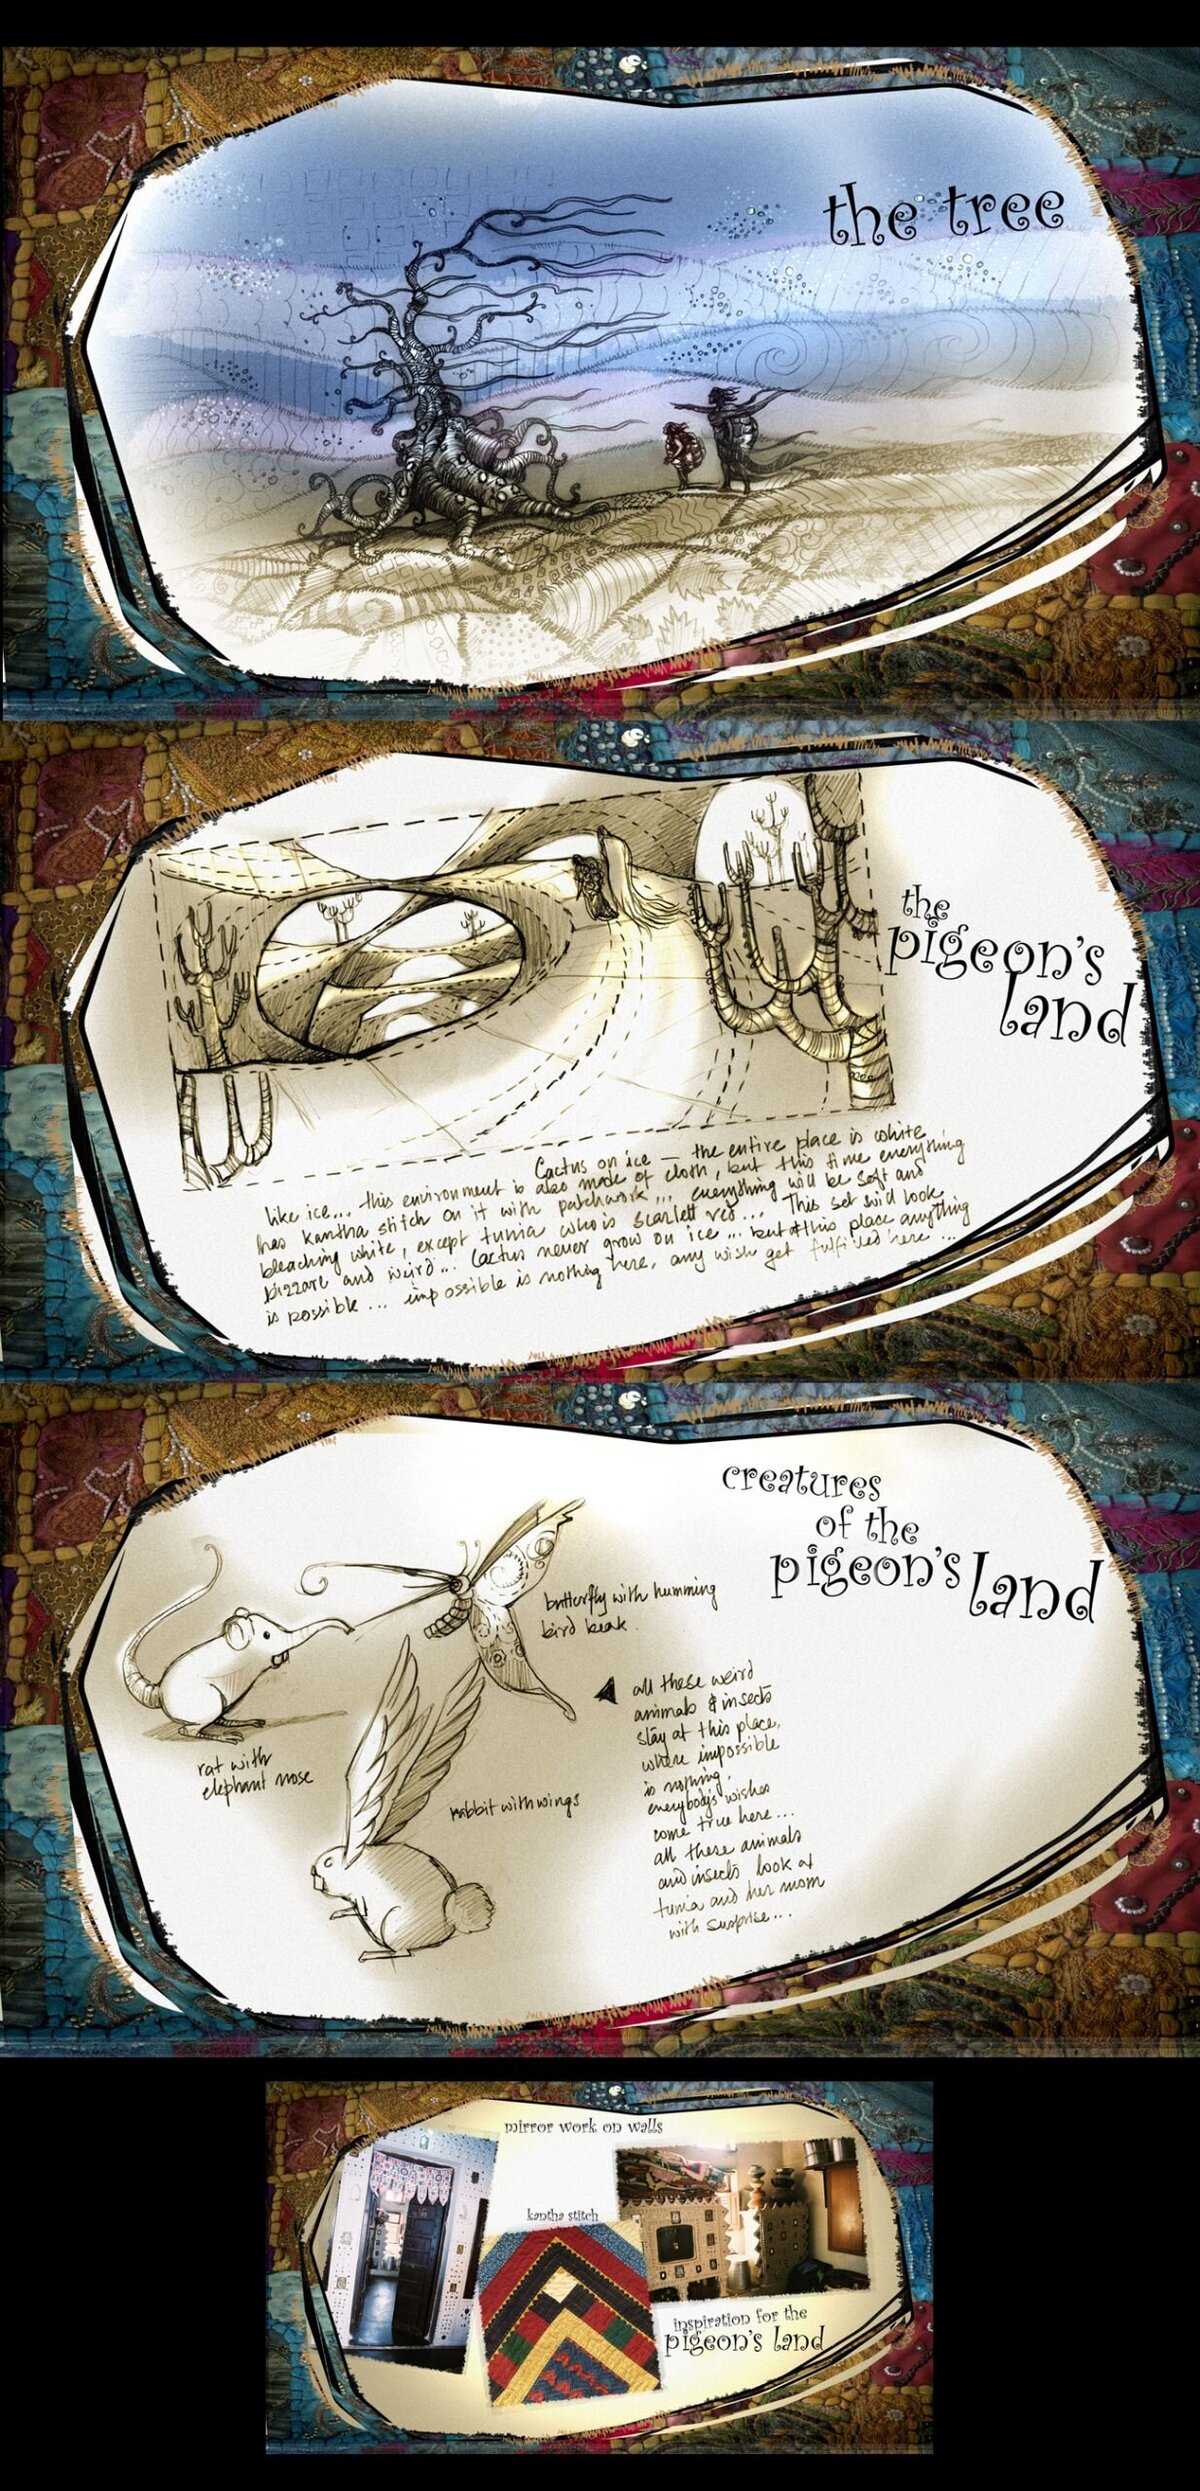 the tree
the
pigeon's
land
Cactus on ice – the entire place is white
like ice... this environment is also made of cloth, but this time everything
has kantha stitch on it with patchwork... everything will be soft and
bleaching white, except tunia who is scarlett red... This set will look
bizzare and weird... Cactus never grow on ice... but at this place anything
is possible... impossible is nothing here, any wish get fulfilled here...
creatures
of the
pigeon's land
butterfly with humming
bird beak.
rat with
elephant nose
rabbit with wings
all these weird
animals & insects
stay at this place,
where impossible
is nothing.
everybody's wishes
come true here...
all these animals
and insects look at
tunia and her mom
with surprise...
mirror work on walls
kantha stitch
inspiration for the
pigeon's land